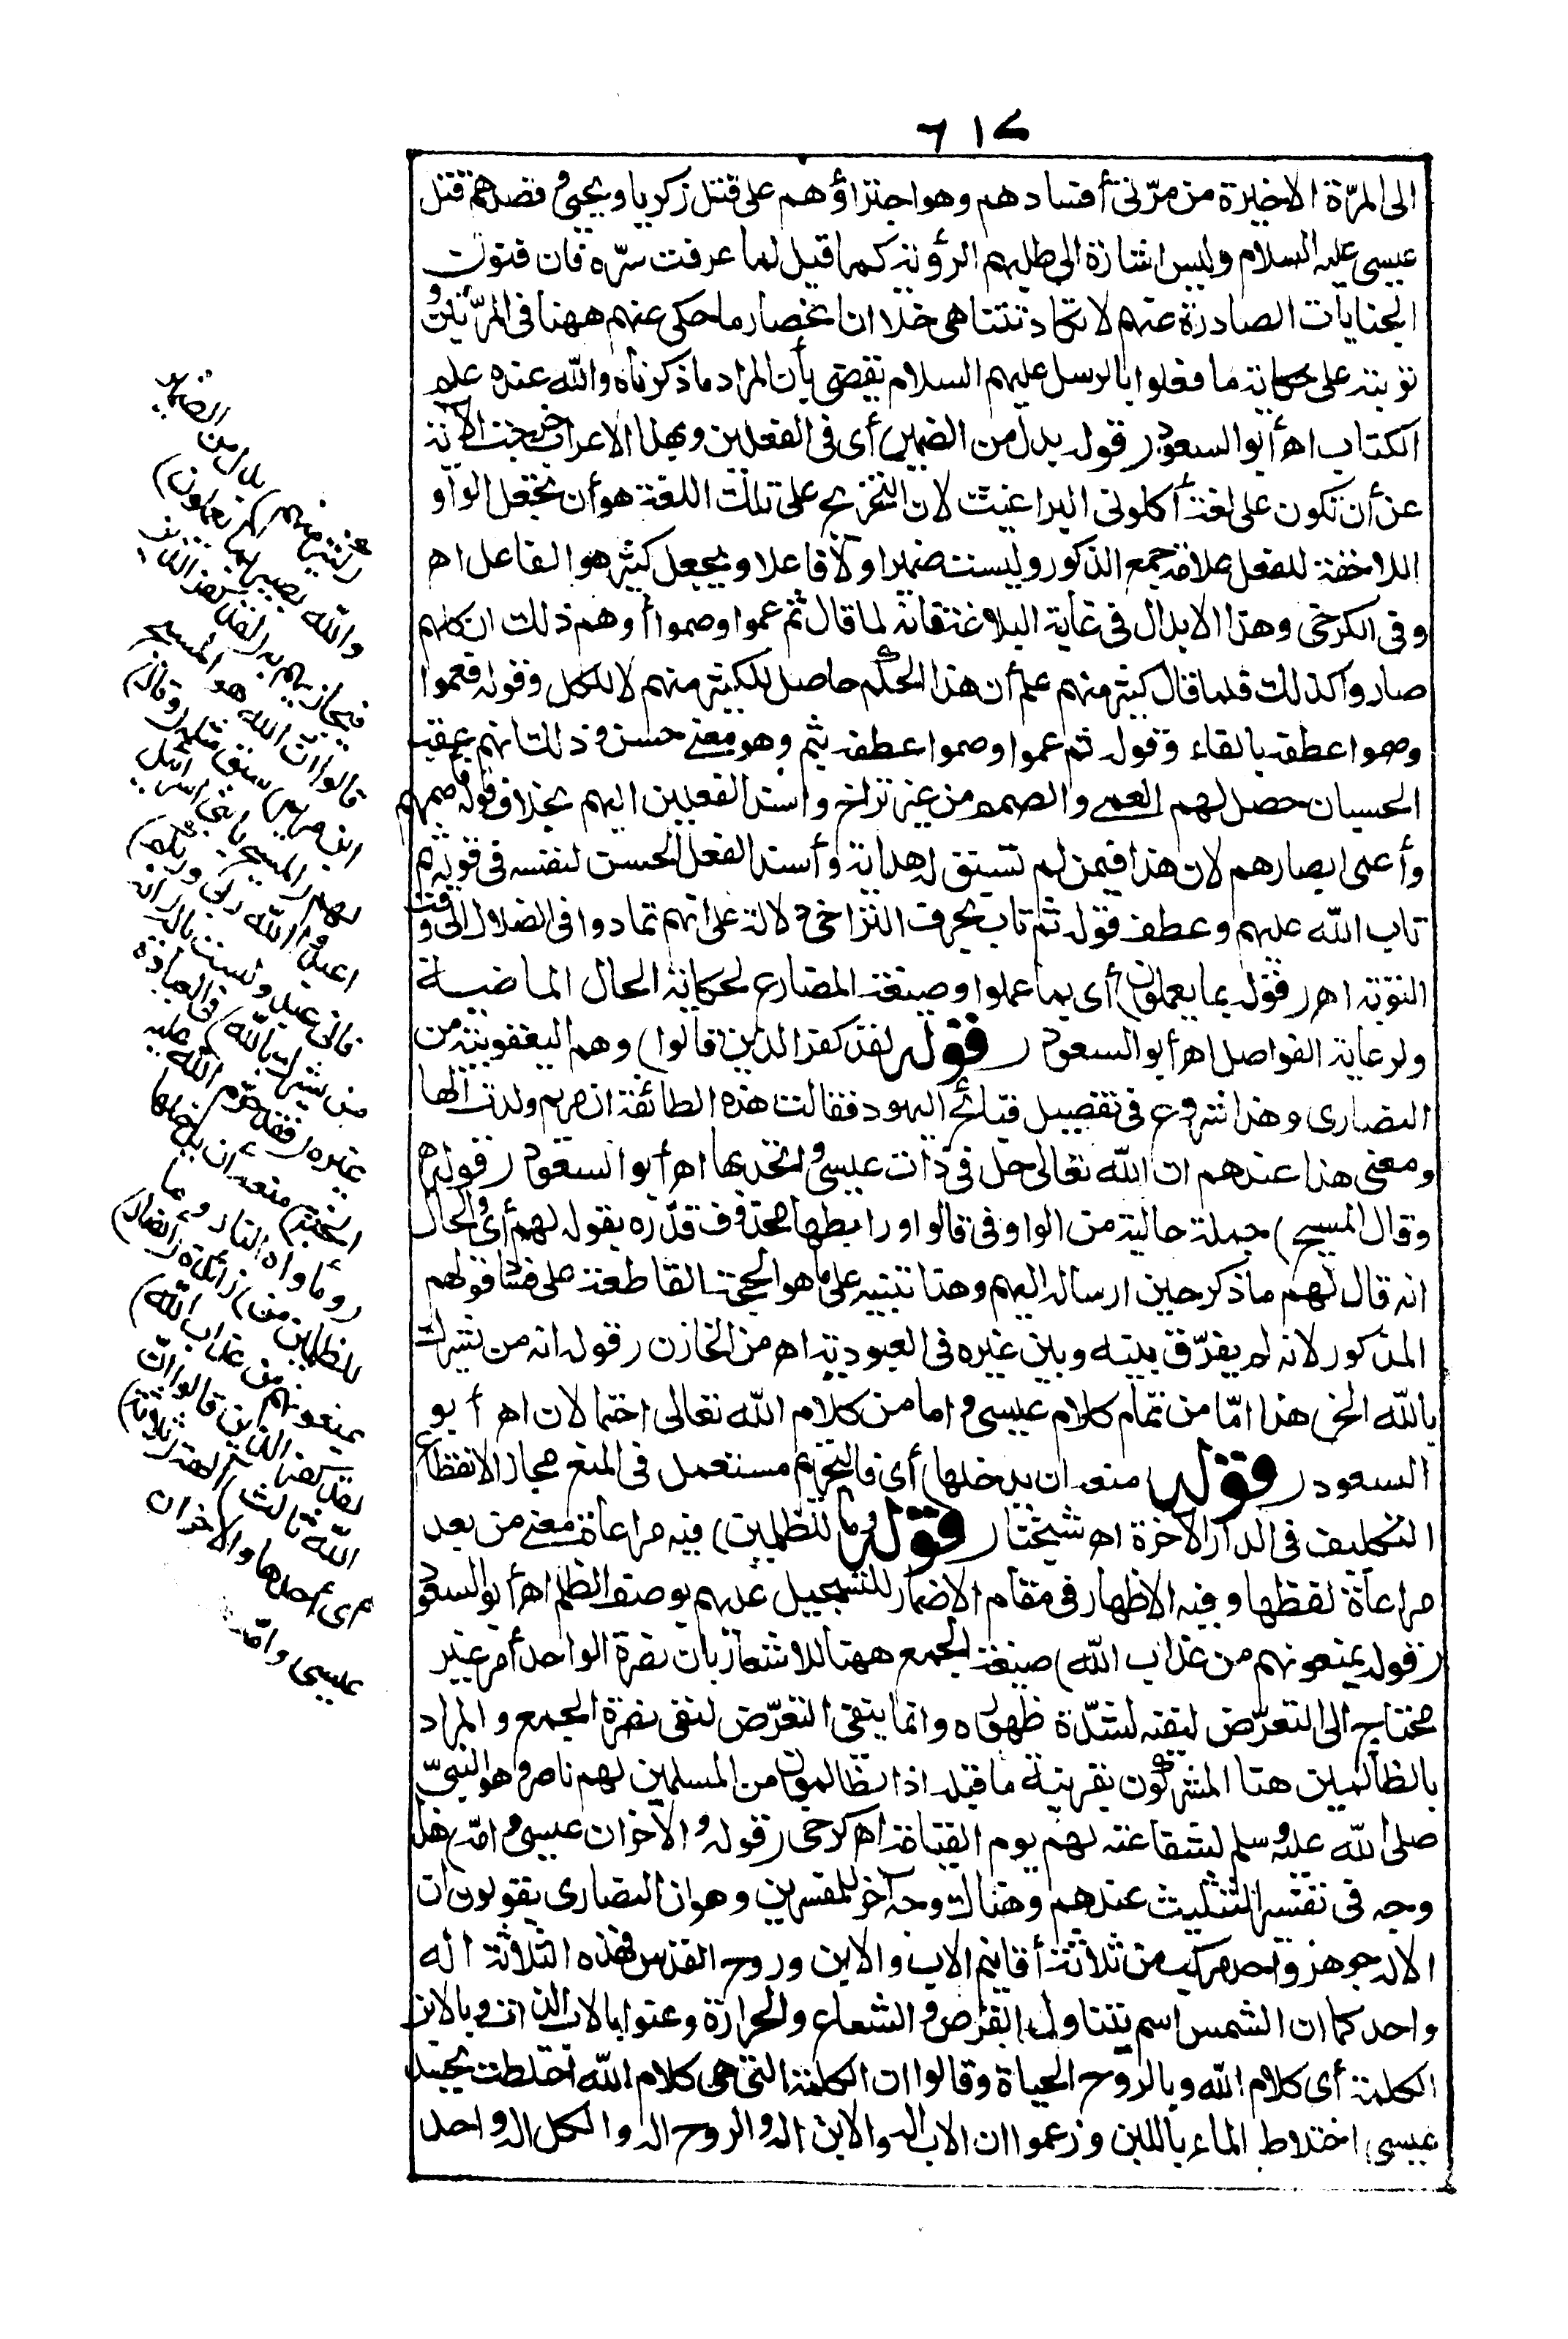 ٦١٧
الى المرّة الاخيرة من مرّتى أفسادهم وهو اجتراؤهم على قتل زكريا ويحيى وقصدهم قتل
عيسى عليه السلام وليس اشارة الى طلبهم الرؤية كما قيل لما عرفت سرّه فان فنون
الجنايات الصادرة عنهم لا تكاد تتناهى خلا ان انحصار ما حكى عنهم ههنا فى المرّتين و
ترتبه على حكاية ما فعلوا بالرسل عليهم السلام يقضى بأن المراد ما ذكرناه والله عنده علم
الكتاب اه أبو السعود (قوله بدل من الضمير) أى فى الفعلين وبهذا الاعراب خرجت الآية
عن أن تكون على لغة أكلونى البراغيث لان التخريج على تلك اللغة هو أن تجعل الواو
اللاحقة للفعل علامة جمع الذكور وليست ضميرا ولا فاعلا ويجعل كثير هو الفاعل اه
وفى الكرخى وهذا الابدال فى غاية البلاغة فانه لما قال ثم عموا وصموا أوهم ذلك ان كلهم
صاروا كذلك فلما قال كثير منهم علم أن هذا الحكم حاصل للكثير منهم لا للكل وقوله فعموا
وصموا عطفه بالفاء وقوله ثم عموا وصموا عطفه بثم وهو معنى حسن وذلك انهم عقيب
الحسبان حصل لهم العمى والصمم من غير تراخ واسند الفعلين اليهم بخلاف قوله فأصمهم
وأعمى ابصارهم لان هذا فيمن لم تسبق له هداية وأسند الفعل الحسن لنفسه فى قوله ثم
تاب الله عليهم وعطف قوله ثم تاب بحرف التراخى دلالة على انهم تمادوا فى الضلال الى وقت
التوبة اه (قوله بما يعملون) أى بما عملوا وصيغة المضارع لحكاية الحال الماضية
ولرعاية الفواصل اه أبو السعود (قوله لقد كفر الذين قالوا) وهم اليعقوبية من
النصارى وهذا شروع فى تفصيل قبائح اليهود فقالت هذه الطائفة ان مريم ولدت الٰها
ومعنى هذا عندهم ان الله تعالى حل فى ذات عيسى واتحد بها اه أبو السعود (قوله
وقال المسيح) جملة حالية من الواو فى قالوا ورابطها محذوف قدّره بقوله لهم أى والحال
انه قال لهم ما ذكر حين ارساله اليهم وهذا تنبيه على ما هو الحجة القاطعة على فساد قولهم
المذكور لانه لم يفرّق بينه وبين غيره فى العبودية اه من الخازن (قوله انه من يشرك
بالله الخ) هذا امّا من تمام كلام عيسى واما من كلام الله تعالى احتمالان اه أبو
السعود (قوله منعه ان يدخلها) أى فالتحريم مستعمل فى المنع مجازا لانقطاع
التكليف فى الدار الآخرة اه شيخنا (قوله وما للظلمين) فيه مراعاة معنى من بعد
مراعاة لفظها وفيه الاظهار فى مقام الاضمار للتسجيل عليهم بوصف الظلم اه أبو السعود
(قوله يمنعونهم من عذاب الله) صيغة الجمع ههنا للاشعار بان نصرة الواحد أمر غير
محتاج الى التعرّض لنفيه لشدّة ظهوره وانما ينفى التعرّض لنفى نصرة الجمع والمراد
بالظالمين هنا المشركون بقرينة ما قبله اذ الظالمون من المسلمين لهم ناصر وهو النبىّ
صلى الله عليه وسلم لشفاعته لهم يوم القيامة اه كرخى (قوله والآخران عيسى وامّه) هذا
وجه فى تفسير التثليث عندهم وهناك وجه آخر للمفسرين وهو ان النصارى يقولون ان
الاله جوهر واحد مركب من ثلاثة أقانيم الاب والابن وروح القدس فهذه الثلاثة اله
واحد كما ان الشمس اسم يتناول القرص والشعاع والحرارة وعنوا بالاب الذات وبالابن
الكلمة أى كلام الله وبالروح الحياة وقالوا ان الكلمة التى هى كلام الله اختلطت بجسد
عيسى اختلاط الماء باللبن وزعموا ان الاب اله والابن اله والروح اله والكل اله واحد
(كثير منهم) بدل من الضمير
والله بصير بما يعملون)
فيجازيهم به (لقد كفر الذين
قالوا ان الله هو المسيح
ابن مريم) سبق مثله (وقال)
لهم (المسيح يا بنى اسرائيل
اعبدوا الله ربى وربكم)
فانى عبد ولست باله (انه
من يشرك بالله) فى العبادة
غيره (فقد حرّم الله عليه
الجنة) منعه أن يدخلها
(ومأواه النار وما
للظلمين من) زائدة (أنصار)
يمنعونهم من عذاب الله
لقد كفر الذين قالوا ان
الله ثالث) آلهة (ثلاثة)
أى أحدها والآخران
عيسى وامّه